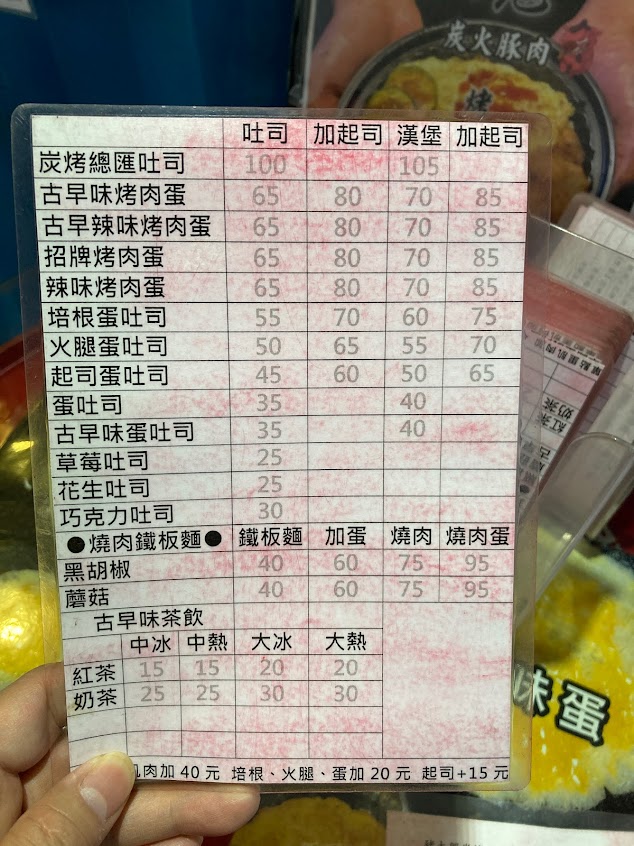 炭火豚肉
吐司 加起司 漢堡 加起司
炭烤總匯吐司 100 105
古早味烤肉蛋 65 80 70 85
古早辣味烤肉蛋 65 80 70 85
招牌烤肉蛋 65 80 70 85
辣味烤肉蛋 65 80 70 85
培根蛋吐司 55 70 60 75
火腿蛋吐司 50 65 55 70
起司蛋吐司 45 60 50 65
蛋吐司 35 40
古早味蛋吐司 35 40
草莓吐司 25
花生吐司 25
巧克力吐司 30
●燒肉鐵板麵● 鐵板麵 加蛋 燒肉 燒肉蛋
黑胡椒 40 60 75 95
蘑菇 40 60 75 95
古早味茶飲
中冰 中熱 大冰 大熱
紅茶 15 15 20 20
奶茶 25 25 30 30
肉加 40 元 培根、火腿、蛋加 20 元 起司+15 元
味蛋
奶茶
紅茶